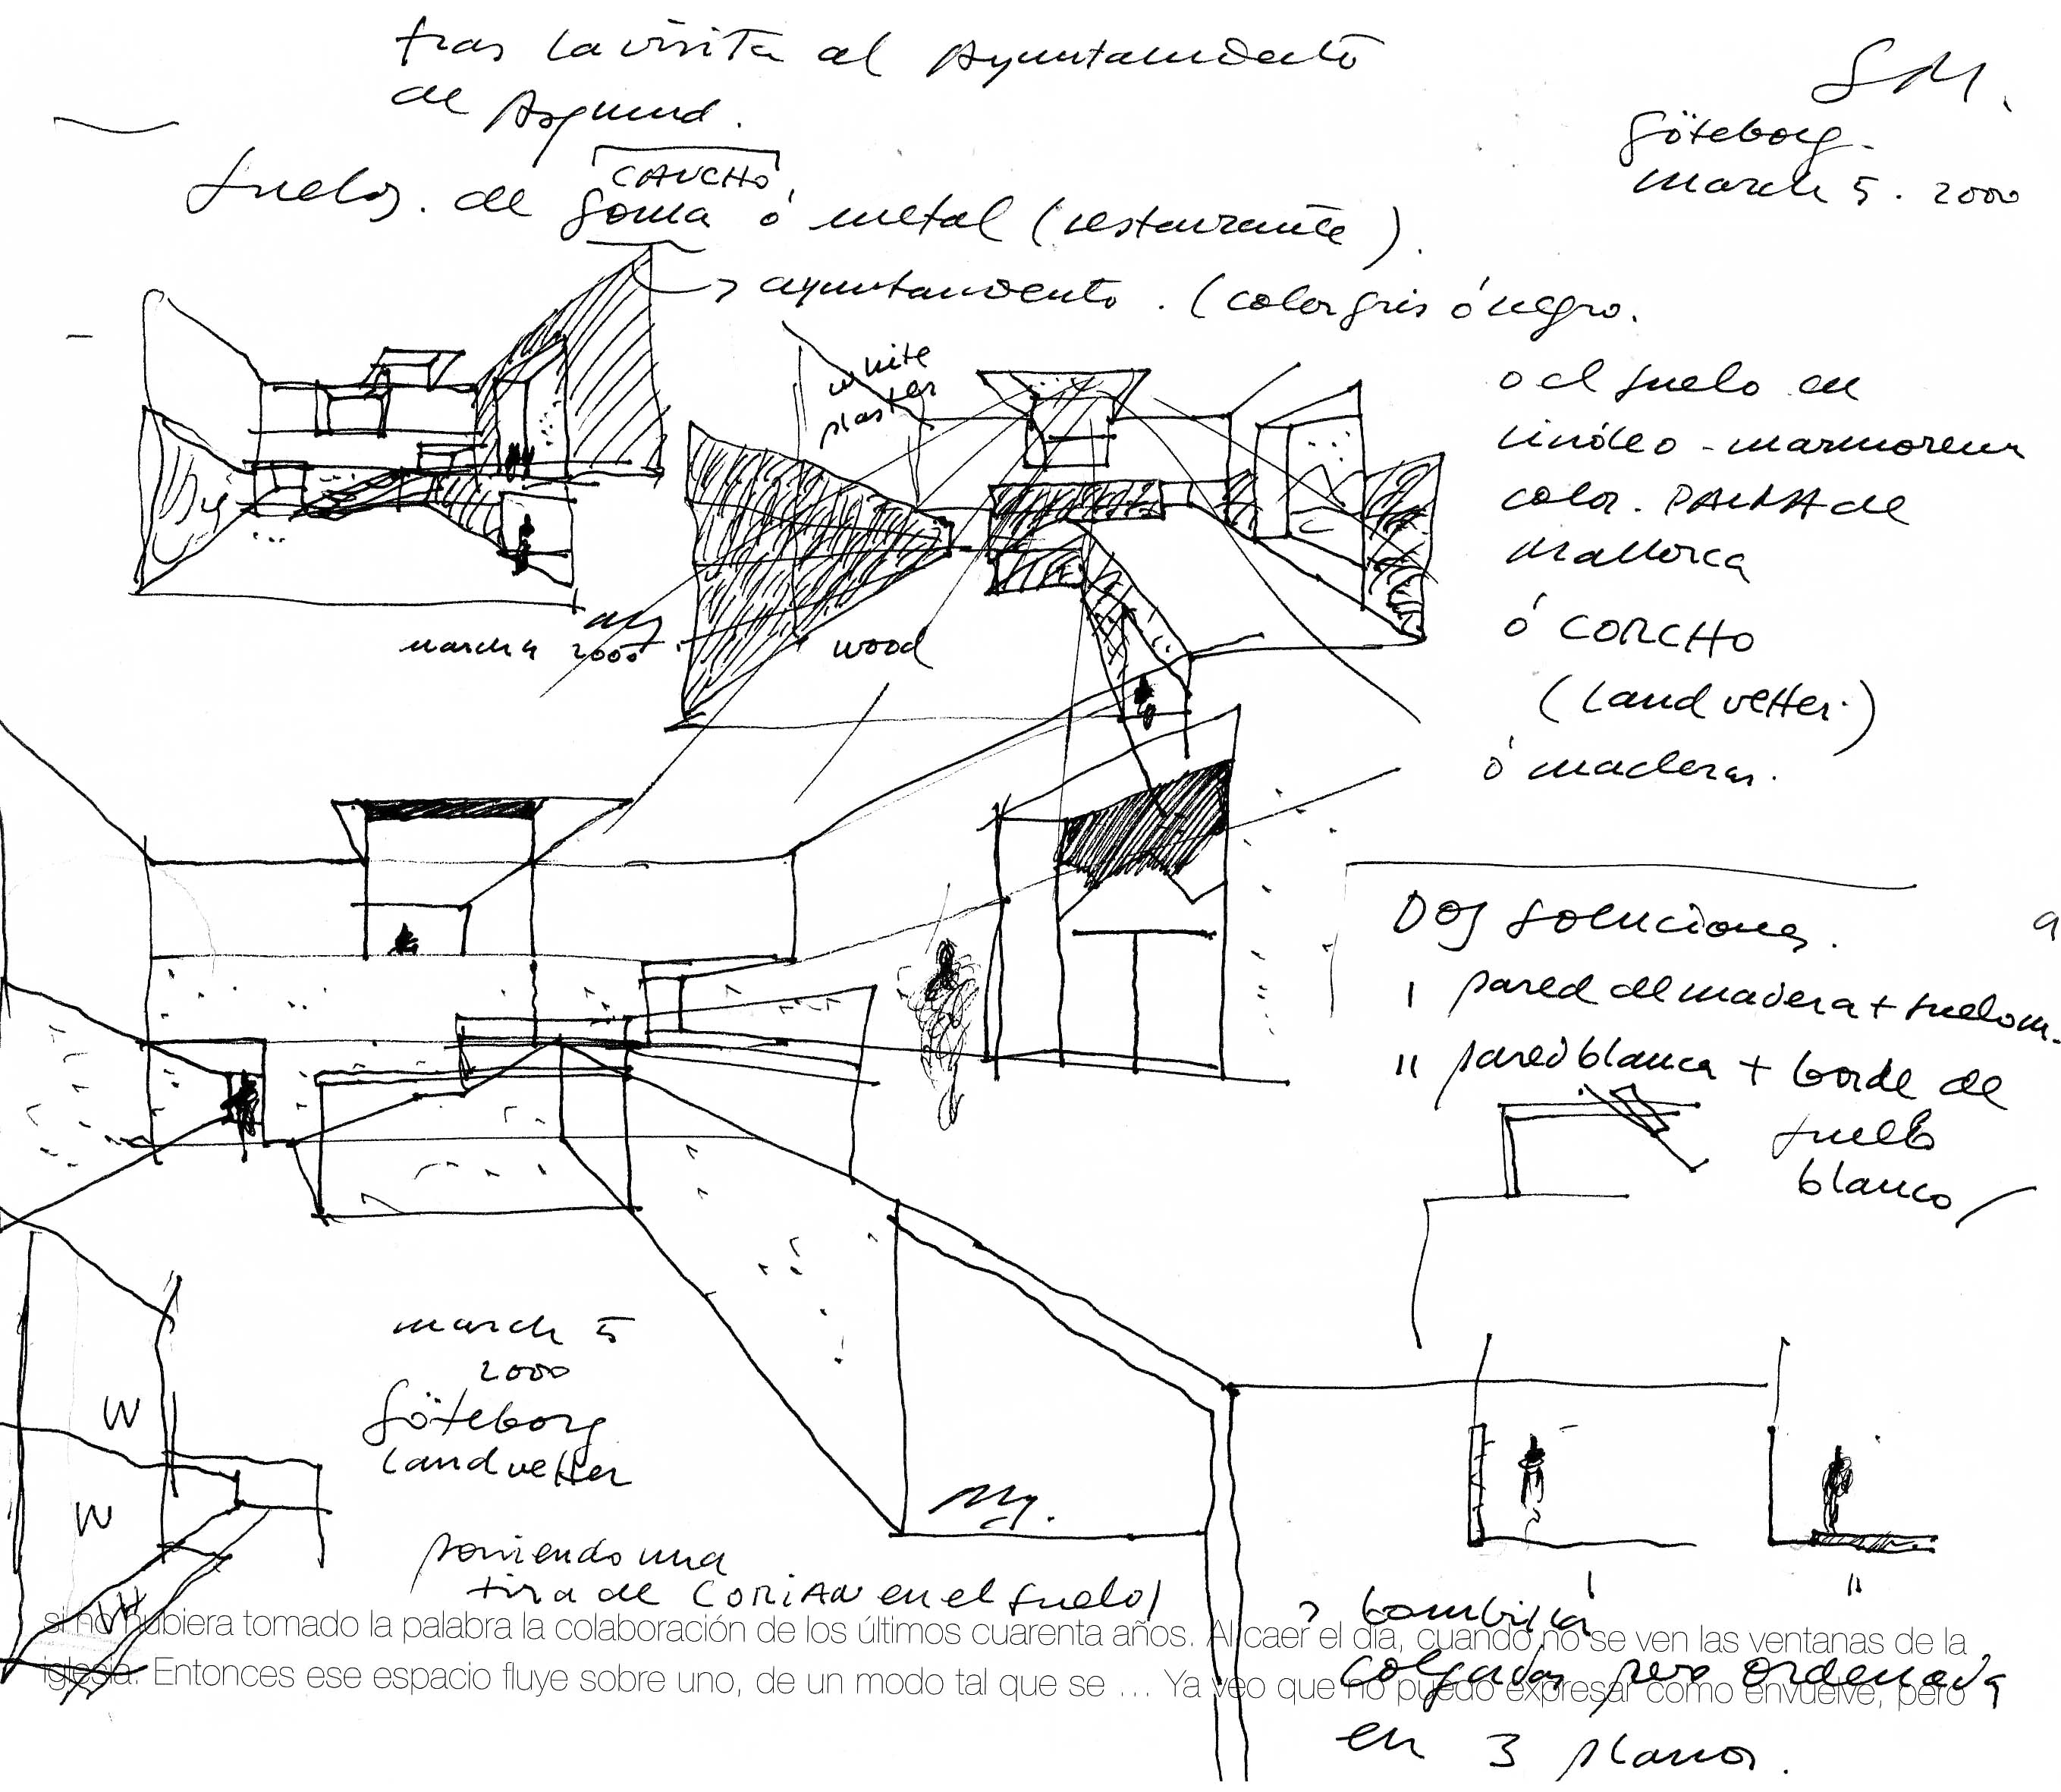 tras la visita al Ayuntamiento
de Asplund.
S M.
Göteborg.
march 5. 2000
CAUCHO
suelos. de goma ó metal (restaurante).
ayuntamiento. (color gris ó negro.
white
plaster
o el suelo en
linóleo - marmoreum
color. PALMA de
Mallorca
ó CORCHO
(Landvetter.)
ó maderas.
march 4 2000
wood
Dos soluciones.
I pared de madera + suelo m.
II pared blanca + borde de
suelo
blanco
W
W
W
march 5
2000
Göteborg
Landvetter
poniendo una
tira de CORIAN en el suelo
I
II
si no hubiera tomado la palabra la colaboración de los últimos cuarenta años. Al caer el día, cuando no se ven las ventanas de la
iglesia. Entonces ese espacio fluye sobre uno, de un modo tal que se … Ya veo que no puedo expresar como envuelve, pero
bombillas
colgadas pero ordenadas
en 3 planos.